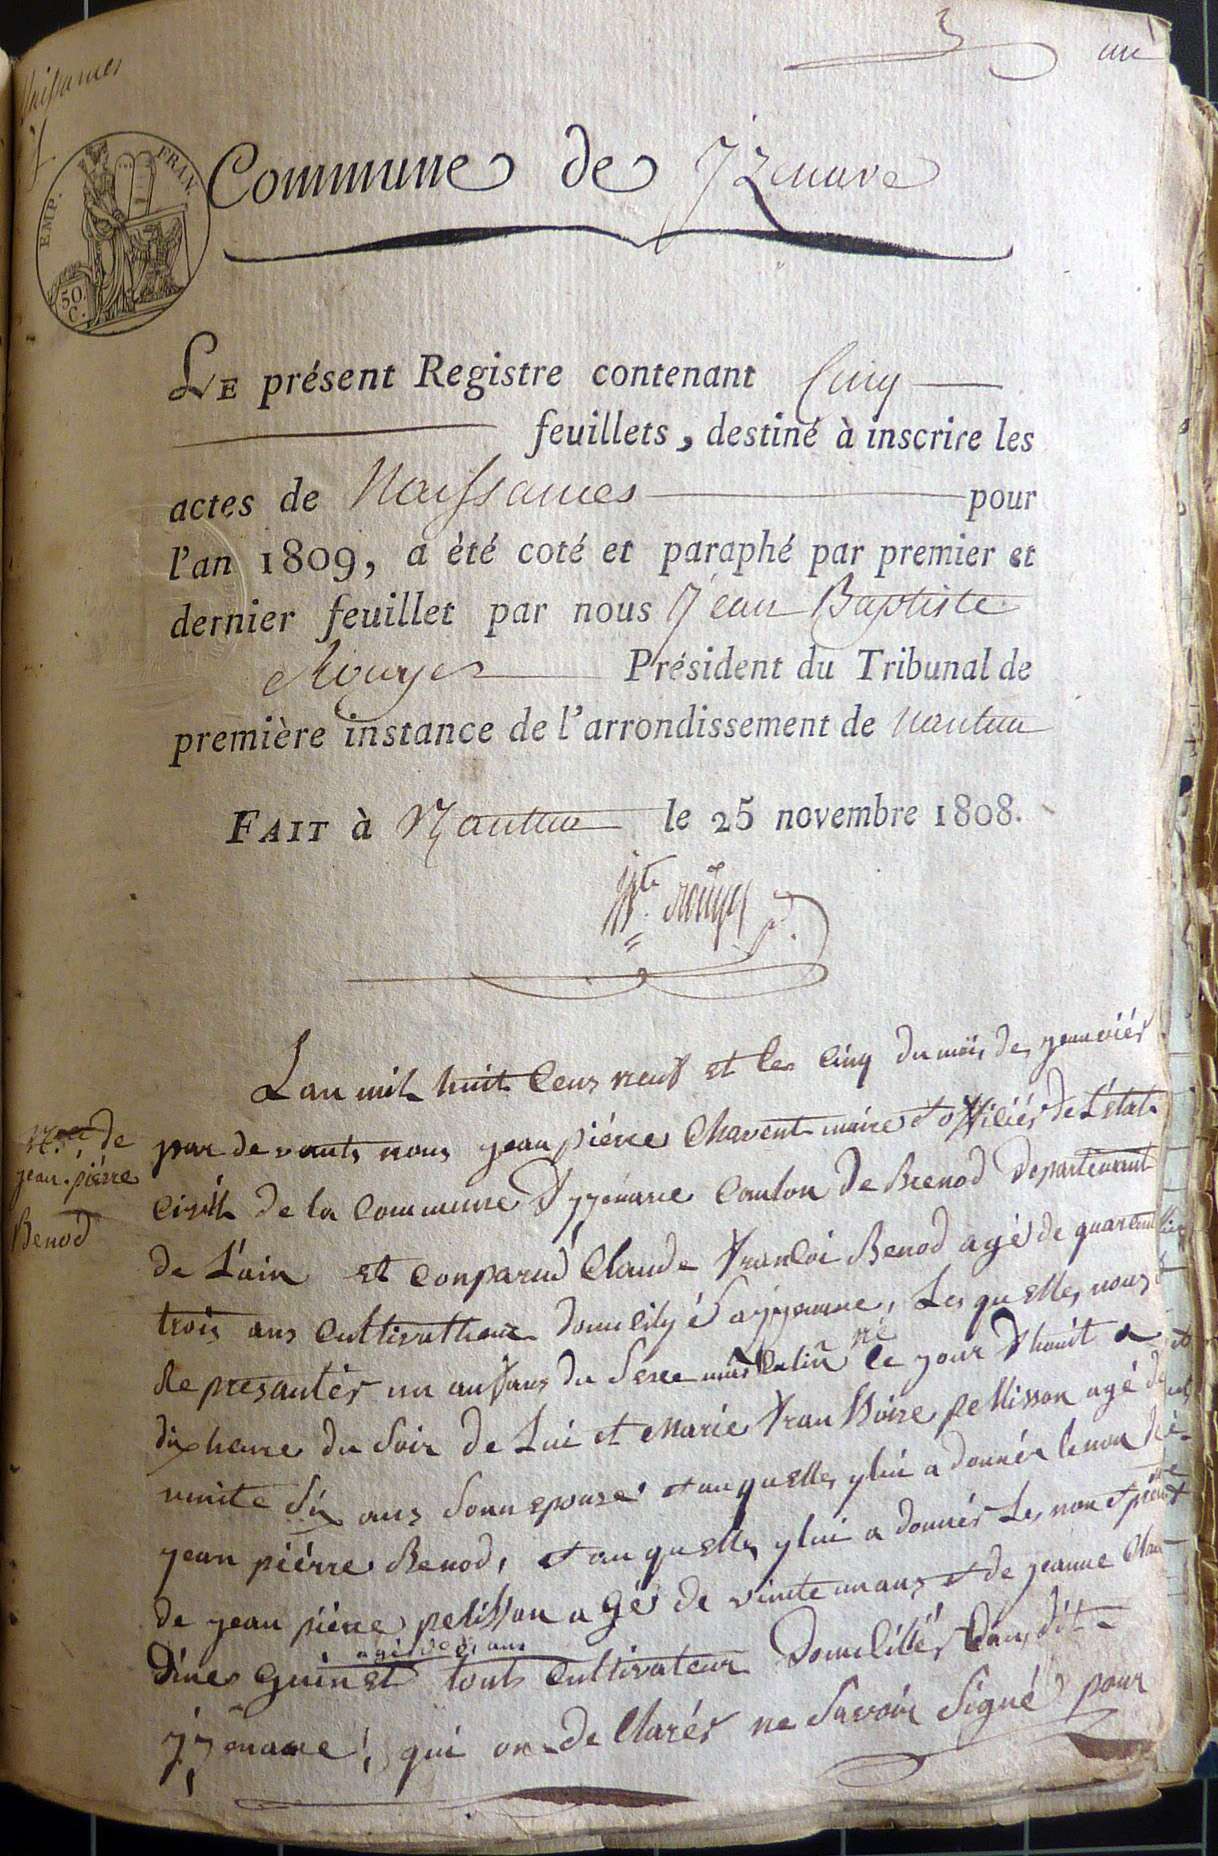 Naissances
un
EMP. FRAN.
50 C.
Commune de Izenave
LE présent Registre contenant Cinq
feuillets, destiné à inscrire les
actes de Naissances pour
l'an 1809, a été coté et paraphé par premier et
dernier feuillet par nous Jean Baptiste
Rouyer Président du Tribunal de
première instance de l'arrondissement de nantua
FAIT à Nantua le 25 novembre 1808.
Jn Bte rouyer
Lan mil huit Cens neuf et le Cinq du mois de genviér
par devants nous jean piérre Chavent maire et offiliés de L'état
Civil de la Commune d'yzénave Canton de Brenod Departement
de L'ain et Conparud Claude francoi Benod agé de quarente
trois ans Cultivatheur Domcilyé a yzenave, Les quelles nous
Represantér un anfans du Sexe masculin né le jour d'huit a
dix heure du Soir de Lui et Marie franSoise pellisson agé de
vinite Six ans Sonn epouse et auquelles yluî a donnér le non de
jean piérre Benod, et au quelles ylui a donnér Les non et
de jean pierre pelisson agé de vinite un ans et de jeanne Clau
dine Guinet touts Cultivateur Domcilliér dudit
yzenave, qui on déClarér ne Savoir Signé pour
Nce. de
jean. piérre
Benod